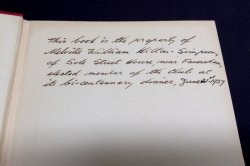 This book is the property of
Melville William Hilton-Simpson,
of Sole Street House, near Faversham,
elected member of the club at
its bi-centenary dinner, June 1927